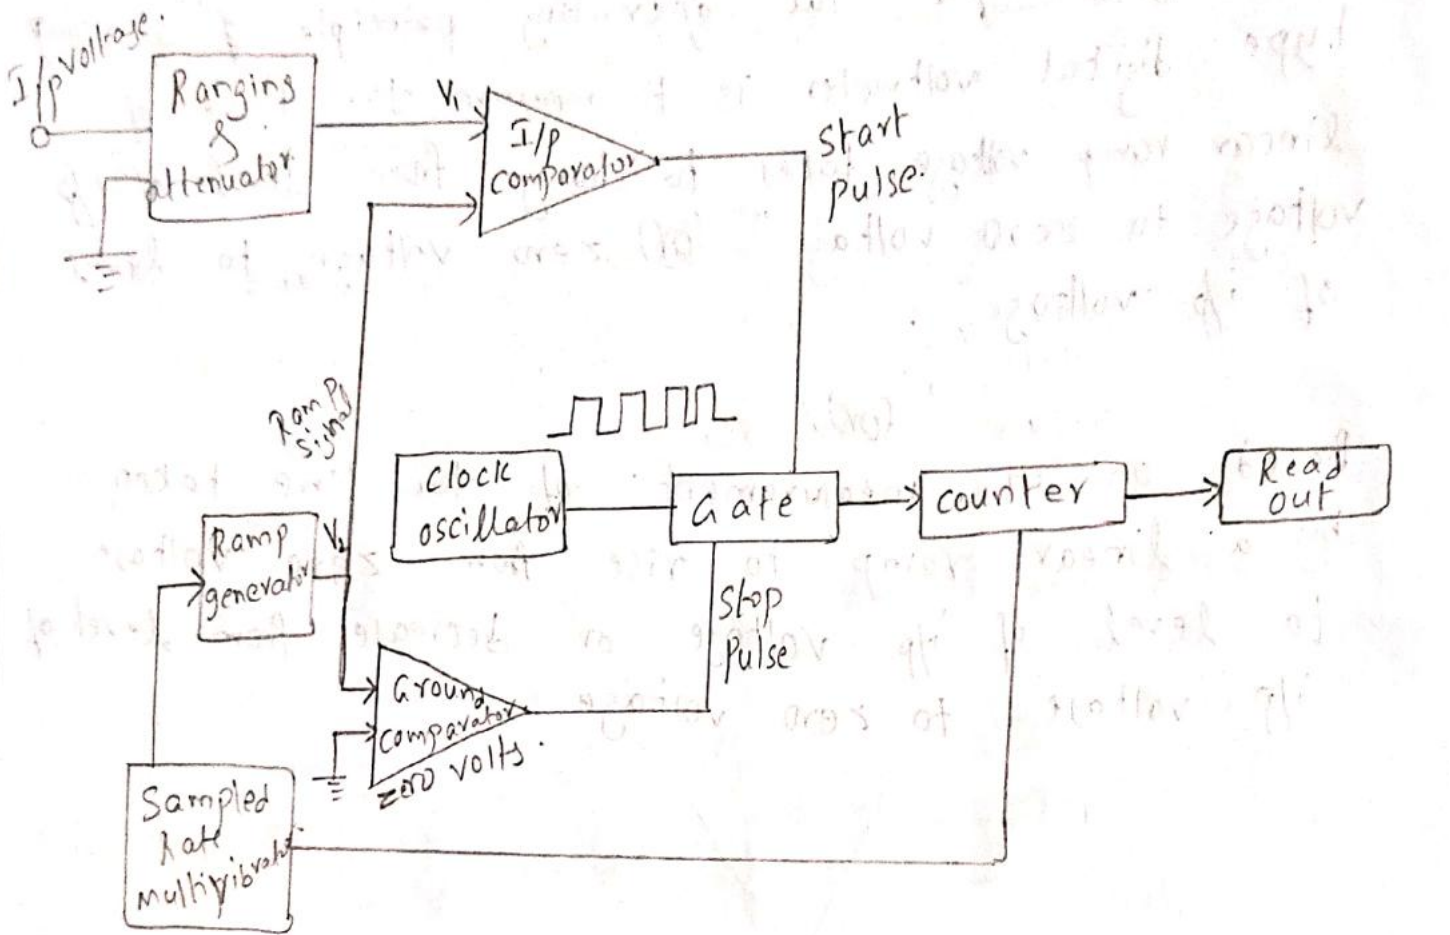 I/p voltage.
Ranging
&
attenuator
V₁
I/p
comparator
Start
pulse.
Ramp
Signal
Clock
oscillator
Gate
counter
Read
out
Ramp
generator
V₂
Stop
Pulse
Ground
comparator
zero volts.
Sampled
Rate
multivibrator